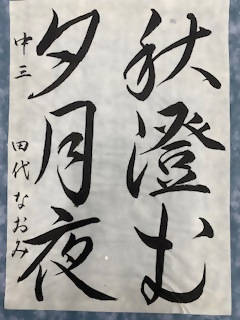 秋澄む
夕月夜
中三 田代なおみ